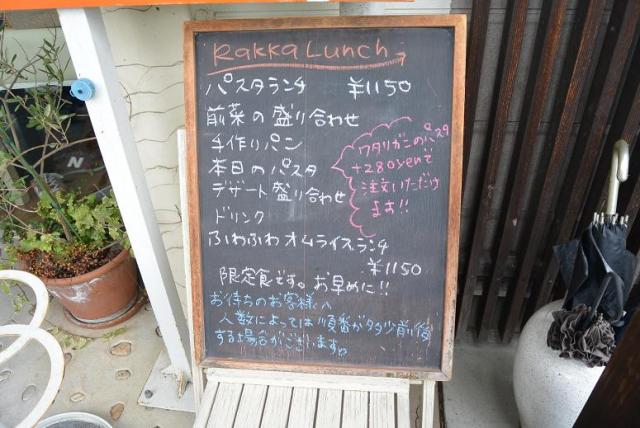 Rakka Lunch
パスタランチ ¥1150
前菜の盛り合わせ
手作りパン
本日のパスタ
デザート盛り合わせ
ドリンク
ワタリガニのパスタ
+280yenで
注文いただけ
ます!!
ふわふわオムライスランチ
¥1150
限定食です。お早めに!!
お待ちのお客様へ
人数によっては順番が多少前後
する場合がございます。
N